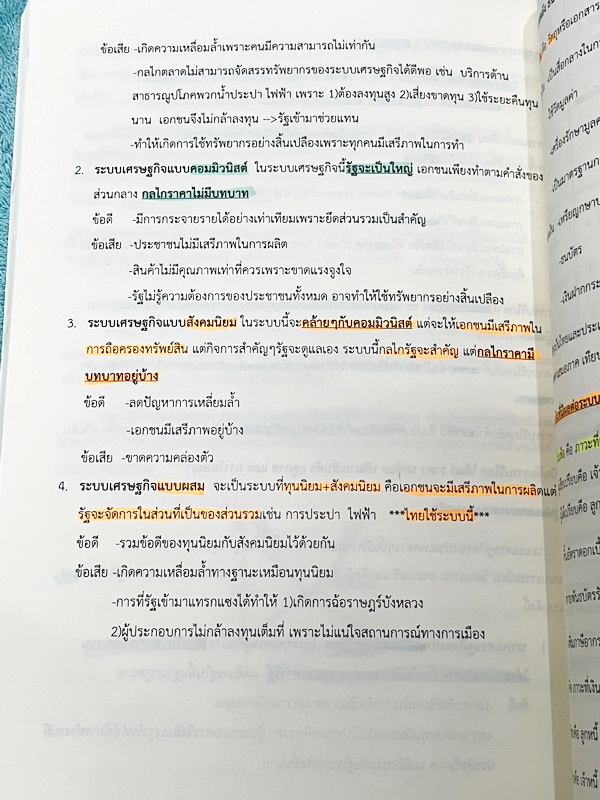 ข้อเสีย -เกิดความเหลื่อมล้ำเพราะคนมีความสามารถไม่เท่ากัน
-กลไกตลาดไม่สามารถจัดสรรทรัพยากรของระบบเศรษฐกิจได้ดีพอ เช่น บริการด้าน
สาธารณูปโภคพวกน้ำประปา ไฟฟ้า เพราะ 1)ต้องลงทุนสูง 2)เสี่ยงขาดทุน 3)ใช้ระยะคืนทุน
นาน เอกชนจึงไม่กล้าลงทุน -->รัฐเข้ามาช่วยแทน
-ทำให้เกิดการใช้ทรัพยากรอย่างสิ้นเปลืองเพราะทุกคนมีเสรีภาพในการทำ
2. ระบบเศรษฐกิจแบบคอมมิวนิสต์ ในระบบเศรษฐกิจนี้รัฐจะเป็นใหญ่ เอกชนเพียงทำตามคำสั่งของ
ส่วนกลาง กลไกราคาไม่มีบทบาท
ข้อดี -มีการกระจายรายได้อย่างเท่าเทียมเพราะยึดส่วนรวมเป็นสำคัญ
ข้อเสีย -ประชาชนไม่มีเสรีภาพในการผลิต
-สินค้าไม่มีคุณภาพเท่าที่ควรเพราะขาดแรงจูงใจ
-รัฐไม่รู้ความต้องการของประชาชนทั้งหมด อาจทำให้ใช้ทรัพยากรอย่างสิ้นเปลือง
3. ระบบเศรษฐกิจแบบสังคมนิยม ในระบบนี้จะคล้ายๆกับคอมมิวนิสต์ แต่จะให้เอกชนมีเสรีภาพใน
การถือครองทรัพย์สิน แต่กิจการสำคัญๆรัฐจะดูแลเอง ระบบนี้กลไกรัฐจะสำคัญ แต่กลไกราคามี
บทบาทอยู่บ้าง
ข้อดี -ลดปัญหาการเหลี่ยมล้ำ
-เอกชนมีเสรีภาพอยู่บ้าง
ข้อเสีย -ขาดความคล่องตัว
4. ระบบเศรษฐกิจแบบผสม จะเป็นระบบที่ทุนนิยม+สังคมนิยม คือเอกชนจะมีเสรีภาพในการผลิตแต่
รัฐจะจัดการในส่วนที่เป็นของส่วนรวมเช่น การประปา ไฟฟ้า ***ไทยใช้ระบบนี้***
ข้อดี -รวมข้อดีของทุนนิยมกับสังคมนิยมไว้ด้วยกัน
ข้อเสีย -เกิดความเหลื่อมล้ำทางฐานะเหมือนทุนนิยม
-การที่รัฐเข้ามาแทรกแซงได้ทำให้ 1)เกิดการฉ้อราษฎร์บังหลวง
2)ผู้ประกอบการไม่กล้าลงทุนเต็มที่ เพราะไม่แน่ใจสถานการณ์ทางการเมือง